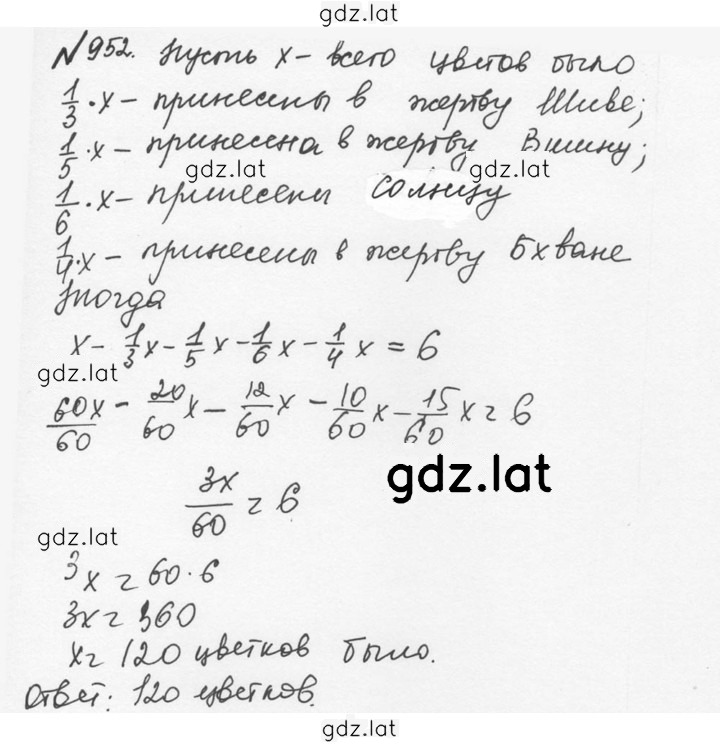 gdz.lat
№952. Пусть x – всего цветов было
1/3 · x – принесены в жертву Шиве;
1/5 · x – принесена в жертву Вишну;
gdz.lat gdz.lat
1/6 · x – принесены Солнцу
1/4 · x – принесены в жертву Бхване
Тогда
x - 1/3 x - 1/5 x - 1/6 x - 1/4 x = 6
gdz.lat
60x/60 - 20/60 x - 12/60 x - 10/60 x - 15/60 x = 6
gdz.lat
3x/60 = 6
gdz.lat
3x = 60 · 6
3x = 360
x = 120 цветков было.
Ответ: 120 цветков.
gdz.lat